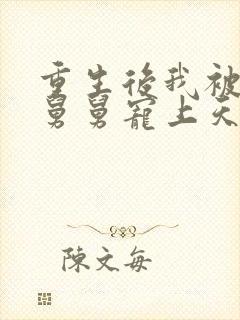 重生後我被
舅舅寵上天
陳文每